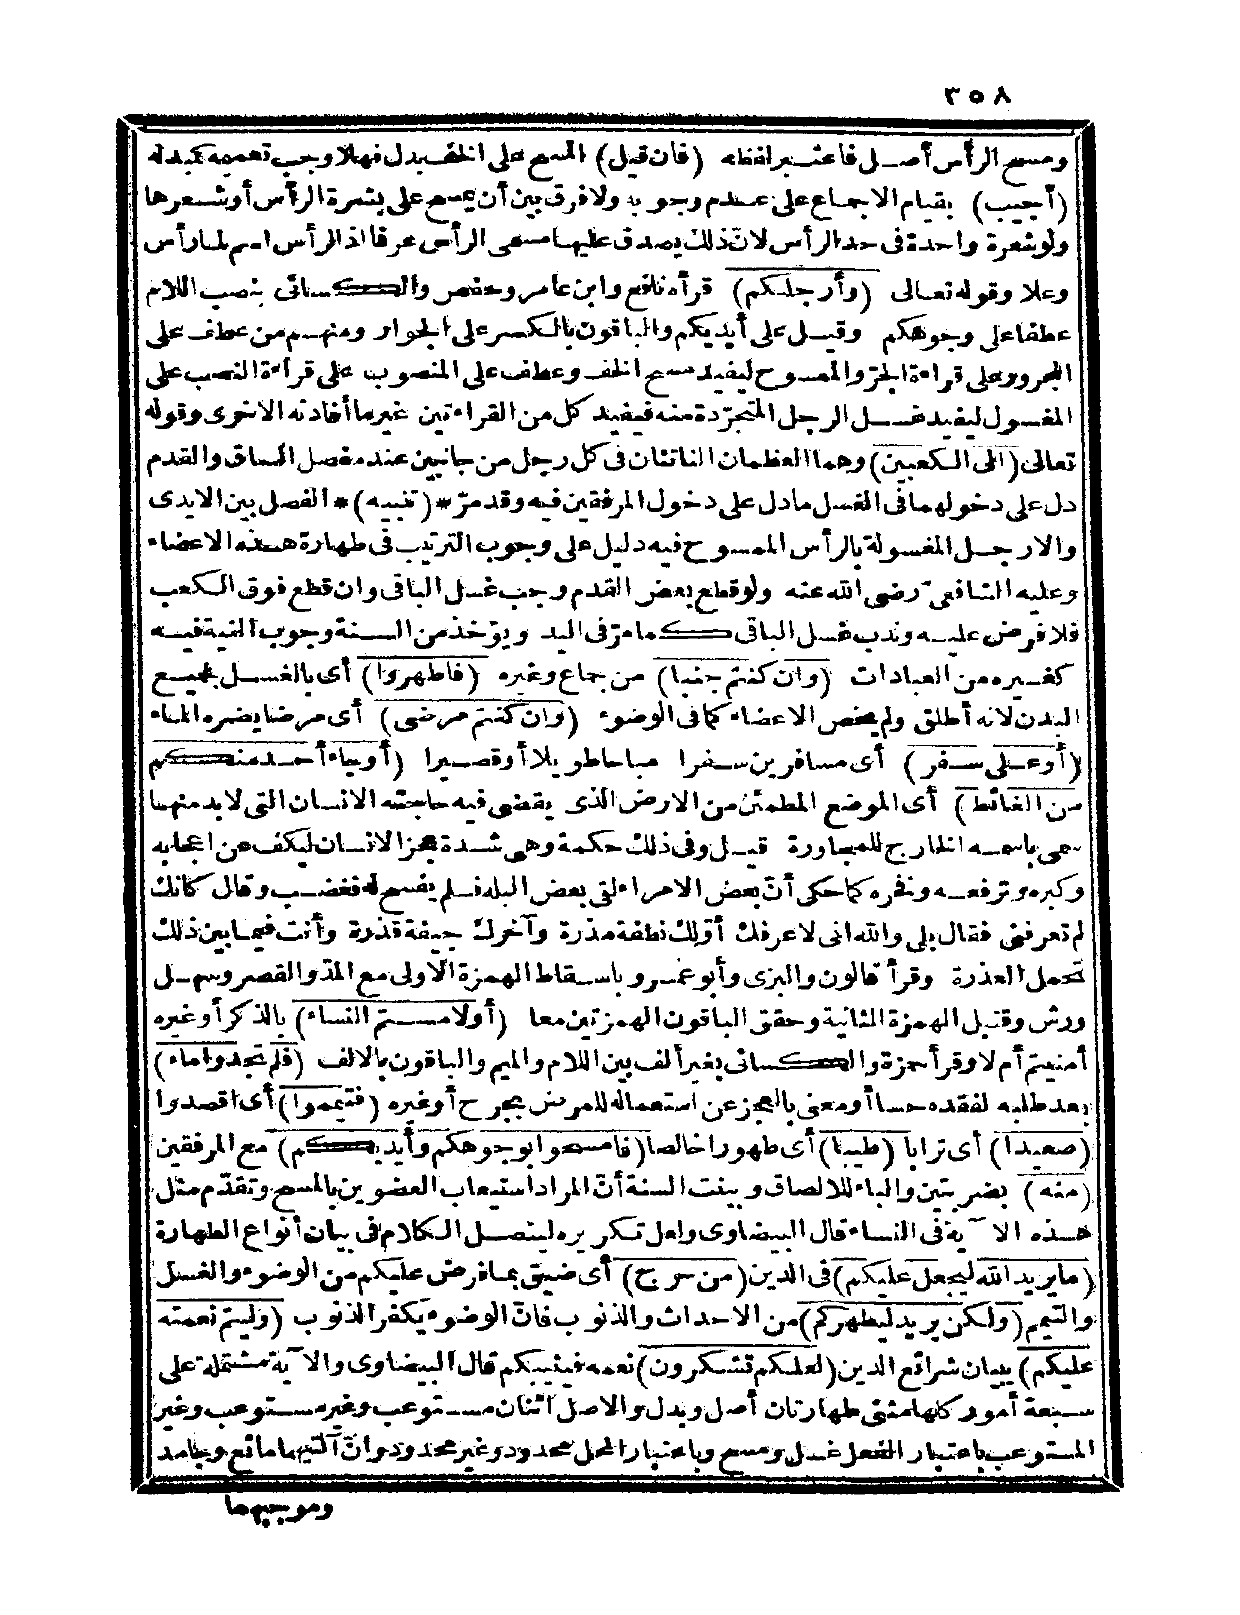 ٣٥٨
ومسح الرأس أصل فاعتبر لفظه (فان قيل) المسح على الخف بدل فهلا وجب تعميمه كمبدله
(أجيب) بقيام الاجماع على عدم وجوبه ولا فرق بين أن يمسح على بشرة الرأس أو شعرها
ولو شعرة واحدة فى حد الرأس لانّ ذلك يصدق عليها مسمى الرأس عرفا اذ الرأس اسم لما رأس
وعلا وقوله تعالى (وأرجلكم) قرأه نافع وابن عامر وحفص والكسائى بنصب اللام
عطفا على وجوهكم وقيل على أيديكم والباقون بالكسر على الجوار ومنهم من عطف على
المجرور على قراءة الجرّ والممسوح ليفيد مسح الخف وعطف على المنصوب على قراءة النصب على
المغسول ليفيد غسل الرجل المتجرّدة منه فيفيد كل من القراءتين غير ما أفادته الاخرى وقوله
تعالى (الى الكعبين) وهما العظمان الناتئان فى كل رجل من جانبين عند مفصل الساق والقدم
دل على دخولهما فى الغسل ما دل على دخول المرفقين فيه وقد مرّ * (تنبيه) * الفصل بين الايدى
والارجل المغسولة بالرأس الممسوح فيه دليل على وجوب الترتيب فى طهارة هذه الاعضاء
وعليه الشافعى رضى الله عنه ولو قطع بعض القدم وجب غسل الباقى وان قطع فوق الكعب
فلا فرض عليه وندب غسل الباقى كما مرّ فى اليد ويؤخذ من السنة وجوب النية فيه
كغيره من العبادات (وان كنتم جنبا) من جماع وغيره (فاطهروا) أى بالغسل لجميع
البدن لانه أطلق ولم يخص الاعضاء كما فى الوضوء (وان كنتم مرضى) أى مرضا يضره الماء
(أو على سفر) أى مسافرين سفرا مباحا طويلا أو قصيرا (أو جاء أحد منكم
من الغائط) أى الموضع المطمئن من الارض الذى يقضى فيه حاجته الانسان التى لا بد منها
سمى باسمه الخارج للمجاورة قيل وفى ذلك حكمة وهى شدة عجز الانسان ليكف عن اعجابه
وكبره وترفعه وفخره كما حكى أنّ بعض الامراء لقى بعض البله فلم يفسح له فغضب وقال كأنك
لم تعرفنى فقال بلى والله انى لاعرفك أوّلك نطفة مذرة وآخرك جيفة قذرة وأنت فيما بين ذلك
تحمل العذرة وقرأ قالون والبزى وأبو عمرو باسقاط الهمزة الاولى مع المدّ والقصر وسهل
ورش وقنبل الهمزة الثانية وحقق الباقون الهمزتين معا (أو لامستم النساء) بالذكر أو غيره
أمنيتم أم لا وقرأ حمزة والكسائى بغير ألف بين اللام والميم والباقون بالالف (فلم تجدوا ماء)
بعد طلبه لفقده حسا أو معنى بالعجز عن استعماله للمرض بجرح أو غيره (فتيمموا) أى اقصدوا
(صعيدا) أى ترابا (طيبا) أى طهورا خالصا (فامسحوا بوجوهكم وأيديكم) مع المرفقين
(منه) بضربتين والباء للالصاق وبينت السنة أنّ المراد استيعاب العضوين بالمسح وتقدّم مثل
هذه الآية فى النساء قال البيضاوى ولعل تكريره ليتصل الكلام فى بيان أنواع الطهارة
(ما يريد الله ليجعل عليكم) فى الدين (من حرج) أى ضيق بما فرض عليكم من الوضوء والغسل
والتيمم (ولكن يريد ليطهركم) من الاحداث والذنوب فانّ الوضوء يكفر الذنوب (وليتم نعمته
عليكم) ببيان شرائع الدين (لعلكم تشكرون) نعمه فيثيبكم قال البيضاوى والآية مشتملة على
سبعة أمور كلها مثنى طهارتان أصل وبدل والاصل اثنان مستوعب وغير مستوعب وغير
المستوعب باعتبار الفعل غسل ومسح وباعتبار المحل محدود وغير محدود وانّ آلتهما مائع وجامد
وموجبهما